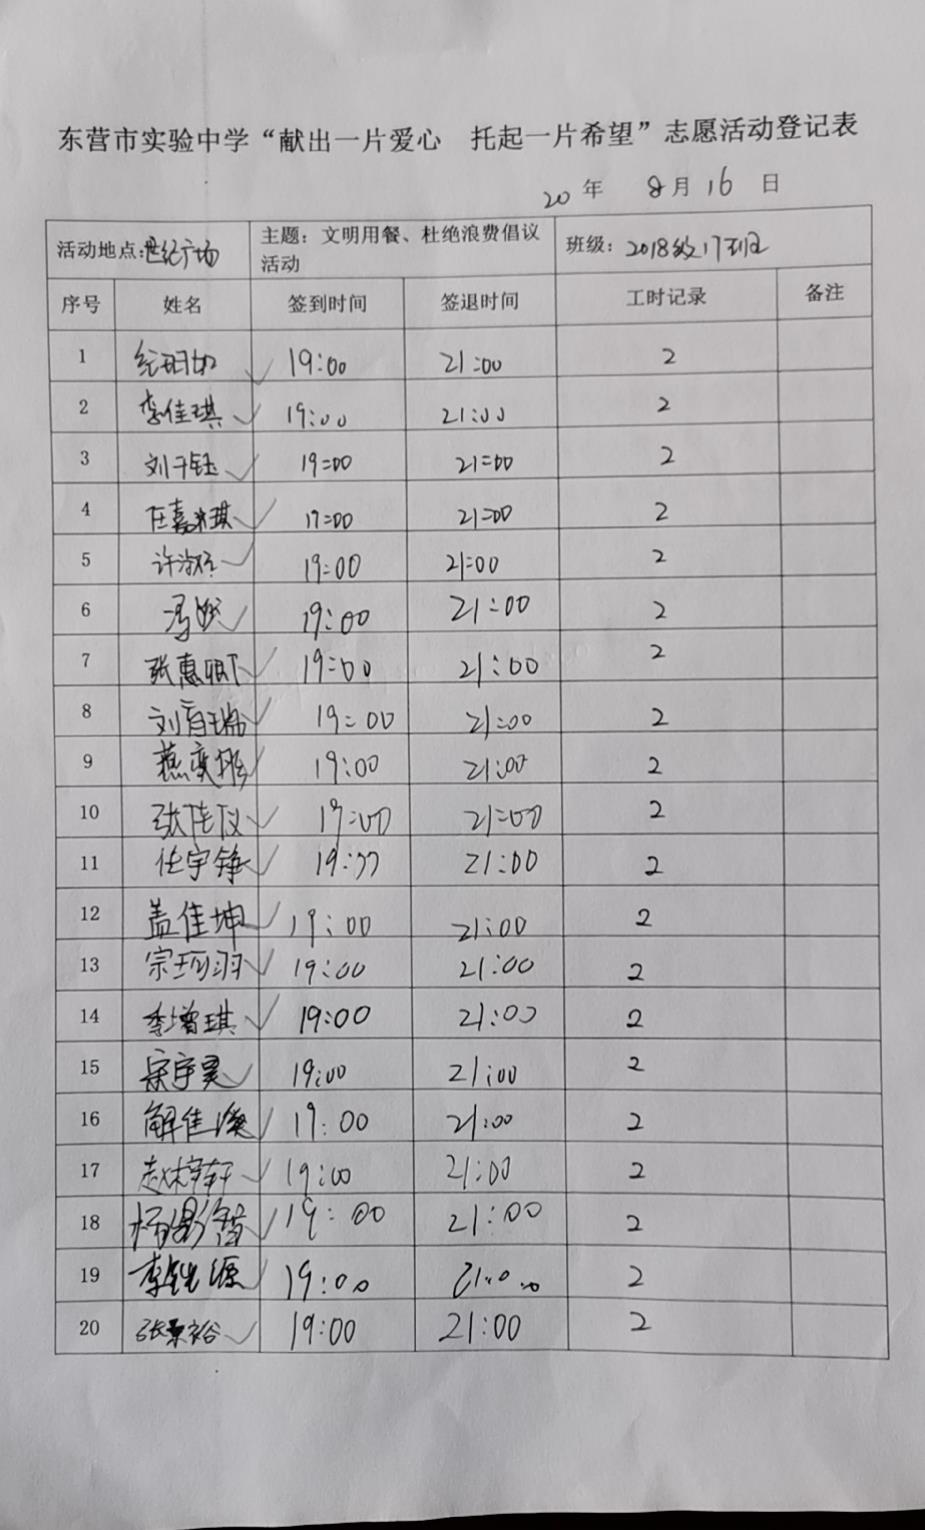 东营市实验中学“献出一片爱心 托起一片希望”志愿活动登记表
20 年 8月 16 日
活动地点:世纪广场 主题：文明用餐、杜绝浪费倡议活动 班级：2018级17班
序号 姓名 签到时间 签退时间 工时记录 备注
1 19:00 21:00 2
2 李佳琪 19:00 21:00 2
3 刘子钰 19:00 21:00 2
4 21:00 2
5 19:00 21:00 2
6 19:00 21:00 2
7 19:00 21:00 2
8 19:00 21:00 2
9 燕奕彤 19:00 21:00 2
10 张佳仪 19:00 21:00 2
11 任宇铮 21:00 2
12 盖佳坤 19:00 21:00 2
13 宗珂羽 19:00 21:00 2
14 季增琪 19:00 21:00 2
15 宋宇昊 19:00 21:00 2
16 解佳滢 19:00 21:00 2
17 赵梓轩 19:00 21:00 2
18 19:00 21:00 2
19 19:00 21:00 2
20 张景裕 19:00 21:00 2